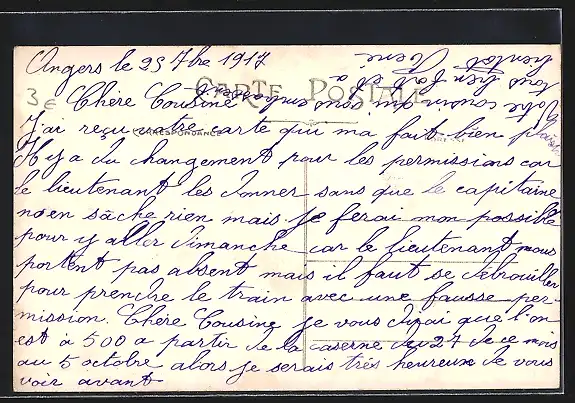 Angers le 25 7bre 1917
3€
CARTE POSTALE
CORRESPONDANCE
Chère Cousine
J'ai reçu votre carte qui ma fait bien plaisir
Il y a du changement pour les permissions car
le lieutenant les donner sans que le capitaine
no en sâche rien mais je ferai mon possible
pour y aller dimanche car le lieutenant nous
portent pas absent mais il faut se debrouiller
pour prendre le train avec une fausse per-
mission. Chère Cousine je vous dirai que l'on
est à 500 a partir de la caserne du 27 de ce mois
au 5 octobre alors je serais très heureux de vous
voir avant
Votre cousin qui
vous
bientot